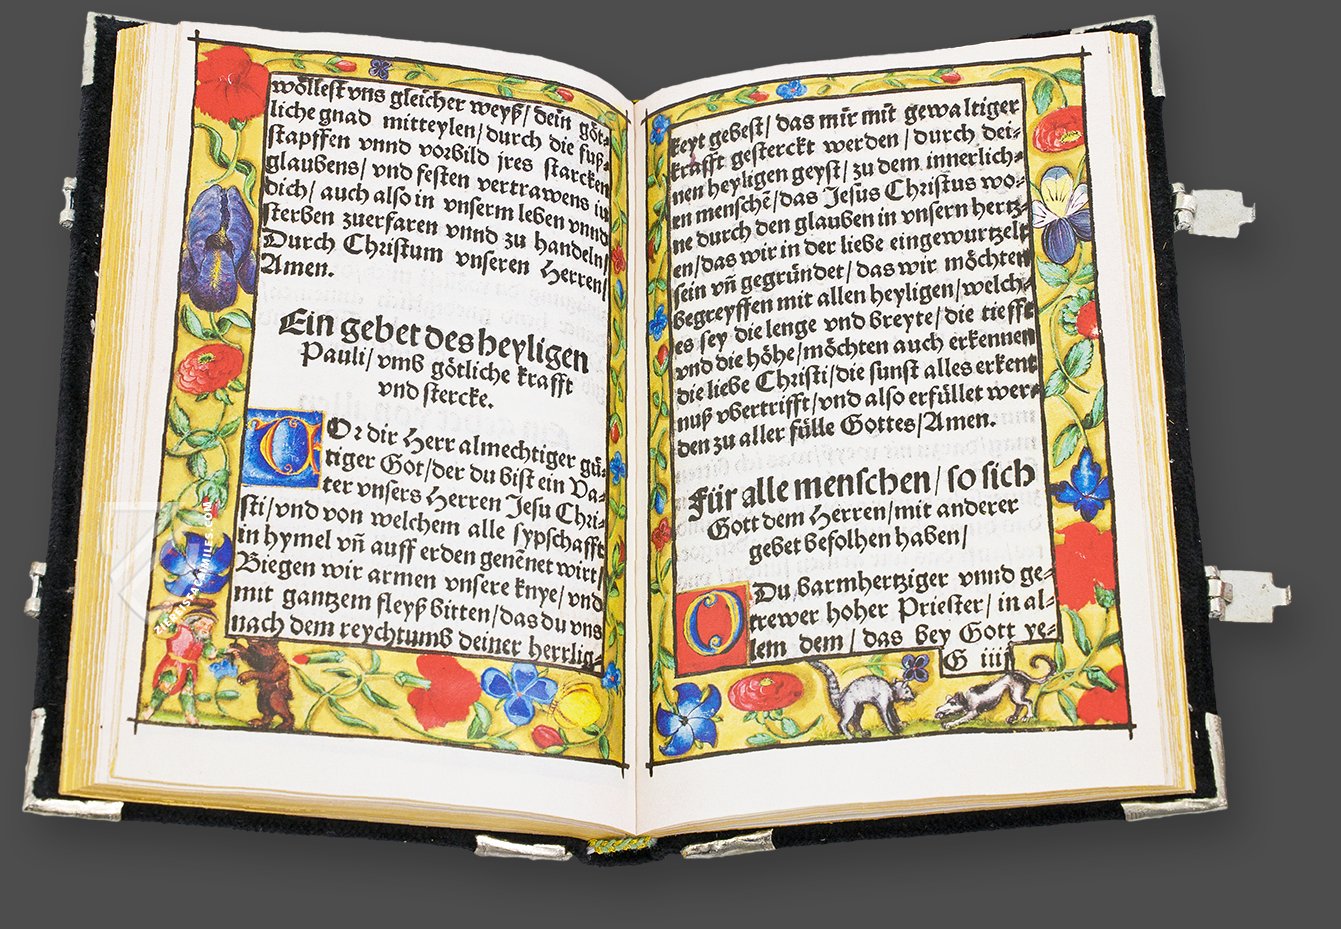 wöllest vns gleicher weyß/ dein göt-
liche gnad mitteylen/durch die fuß-
stapffen vnnd vorbild jres starcken
glaubens/ vnd festen vertrawens in
dich/ auch also in vnserm leben vnnd
sterben zuerfaren vnnd zu handeln/
Durch Christum vnseren Herren/
Amen.
Ein gebet des heyligen
Pauli/ vmb götliche krafft
vnd stercke.
VOr dir Herr almechtiger gü-
tiger Got/der du bist ein Va-
ter vnsers Herren Jesu Chri-
sti/vnd von welchem alle sypschafft
in hymel vñ auff erden genēnet wirt/
Biegen wir armen vnsere knye/ vnd
mit gantzem fleyß bitten/das du vns
nach dem reychtumb deiner herrlig-
keyt gebest/ das mir mit gewaltiger
krafft gesterckt werden / durch dei-
nen heyligen geyst/ zu dem innerlich-
en menschē/das Jesus Christus wo-
ne durch den glauben in vnsern hertz-
en/das wir in der liebe eingewurtzelt
sein vñ gegründet/ das wir möchten
begreyffen mit allen heyligen/ welch-
es sey die lenge vnd breyte/ die tieffe
vnd die höhe/möchten auch erkennen
die liebe Christi/die sunst alles erkent
nuß vbertrifft/vnd also erfüllet wer-
den zu aller fülle Gottes/Amen.
Für alle menschen/ so sich
Gott dem Herren/mit anderer
gebet befolhen haben/
O Du barmhertziger vnnd ge-
trewer hoher Priester/ in al-
lem dem/ das bey Gott ye-
G iiij